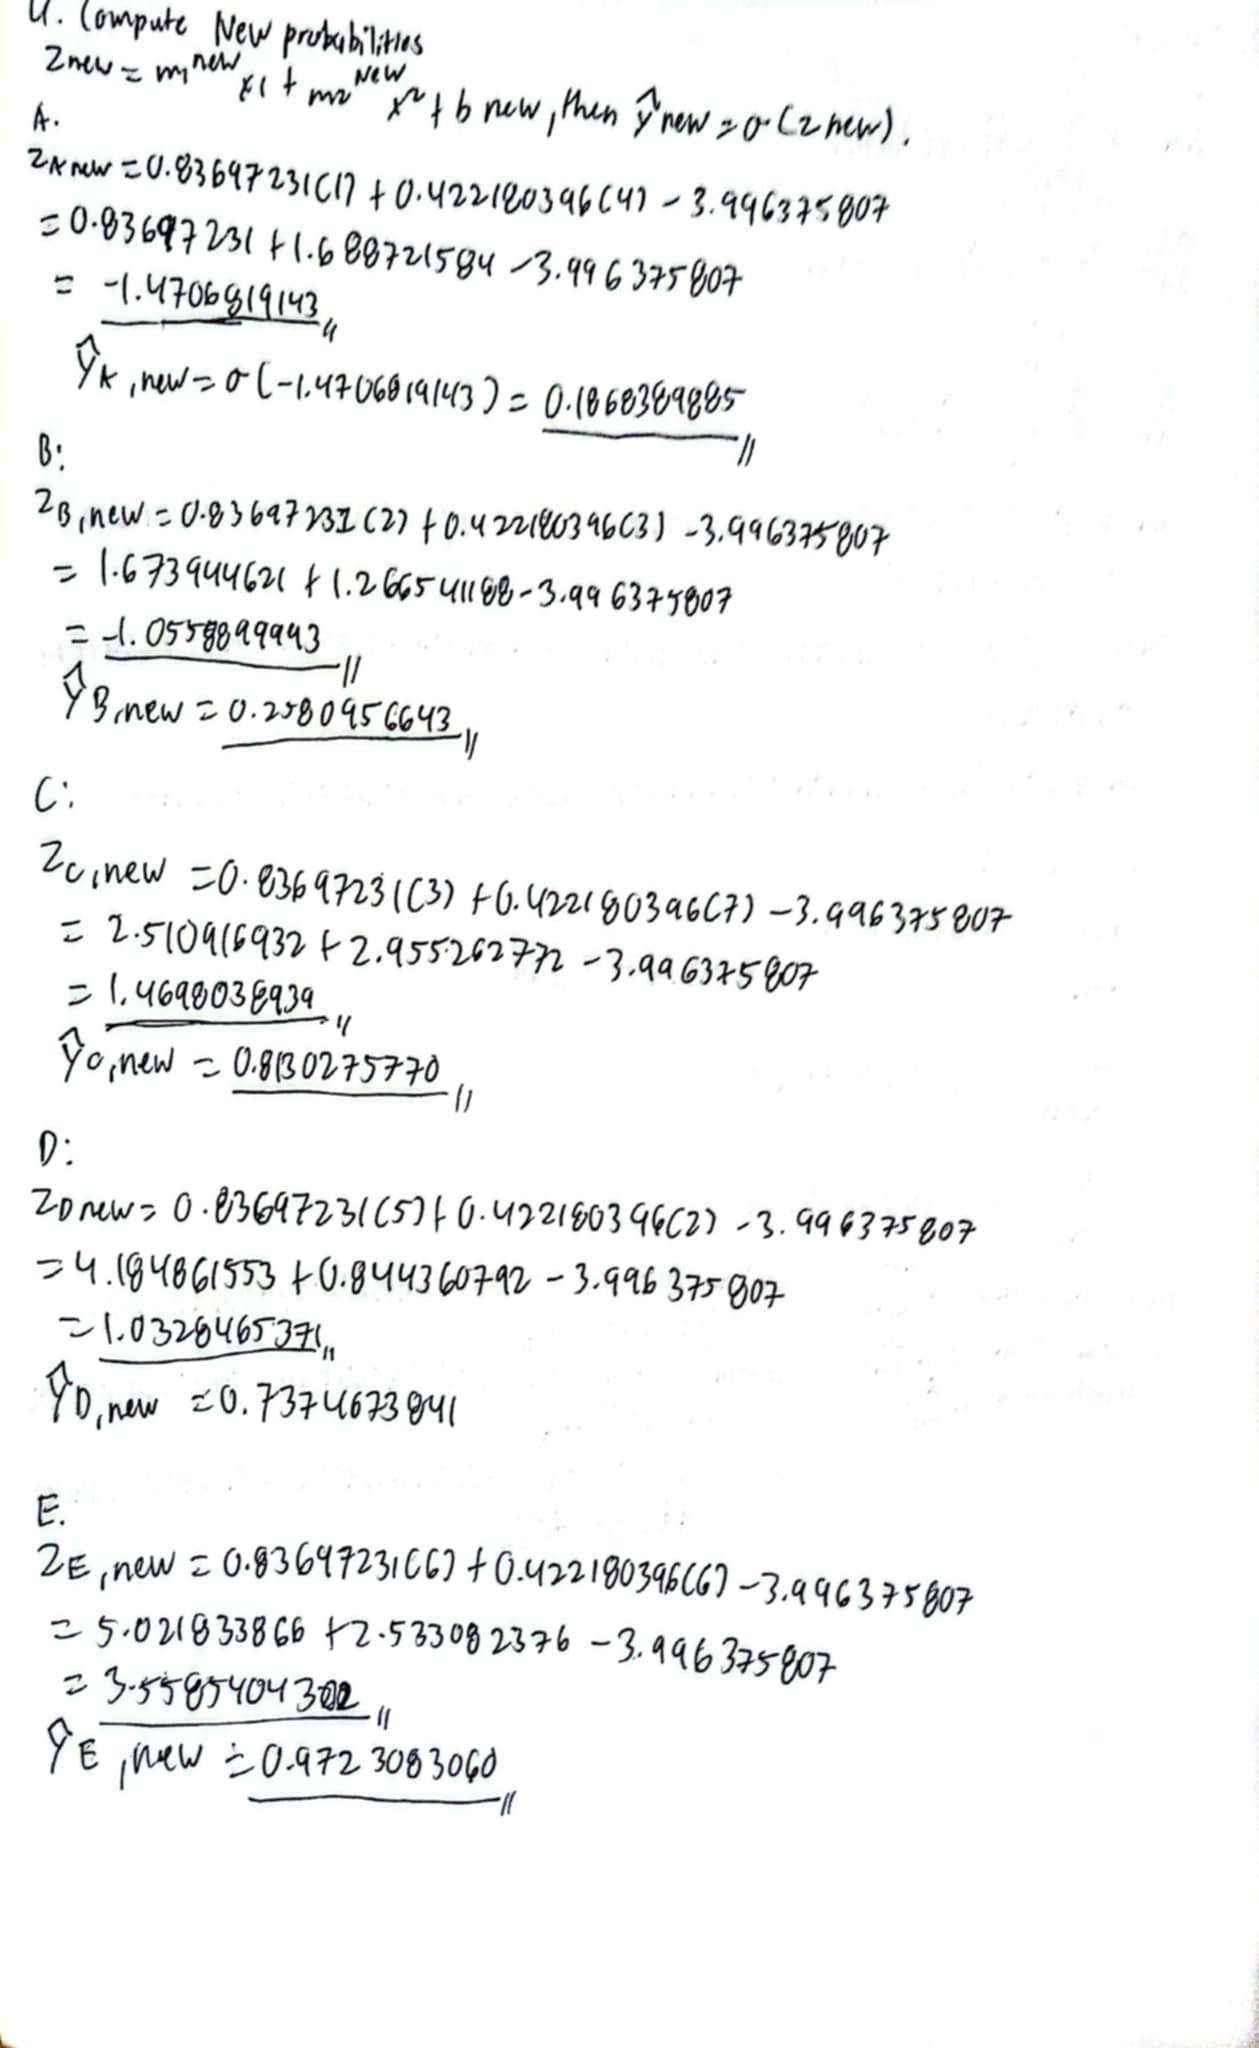 4. Compute New probabilities
Znew = m1^new x1 + m2^New x2 + b new, then ŷnew = σ(znew).
A.
ZA new = 0.83697231(1) + 0.422180396(4) - 3.996375807
= 0.83697231 + 1.688721584 - 3.996375807
= -1.4706819143
ŷA, new = σ(-1.4706819143) = 0.1868389885
B:
ZB, new = 0.83697231(2) + 0.422180396(3) - 3.996375807
= 1.673944621 + 1.266541188 - 3.996375807
= -1.0558899943
ŷB, new = 0.2580956643
C:
Zc, new = 0.83697231(3) + 0.422180396(7) - 3.996375807
= 2.510916932 + 2.955262772 - 3.996375807
= 1.4698038939
ŷc, new = 0.8130275770
D:
ZD new = 0.83697231(5) + 0.422180396(2) - 3.996375807
= 4.184861553 + 0.844360792 - 3.996375807
= 1.0328465371
ŷD, new = 0.7374673841
E.
ZE, new = 0.83697231(6) + 0.422180396(6) - 3.996375807
= 5.021833866 + 2.533082376 - 3.996375807
= 3.5585404302
ŷE, new = 0.9723083060